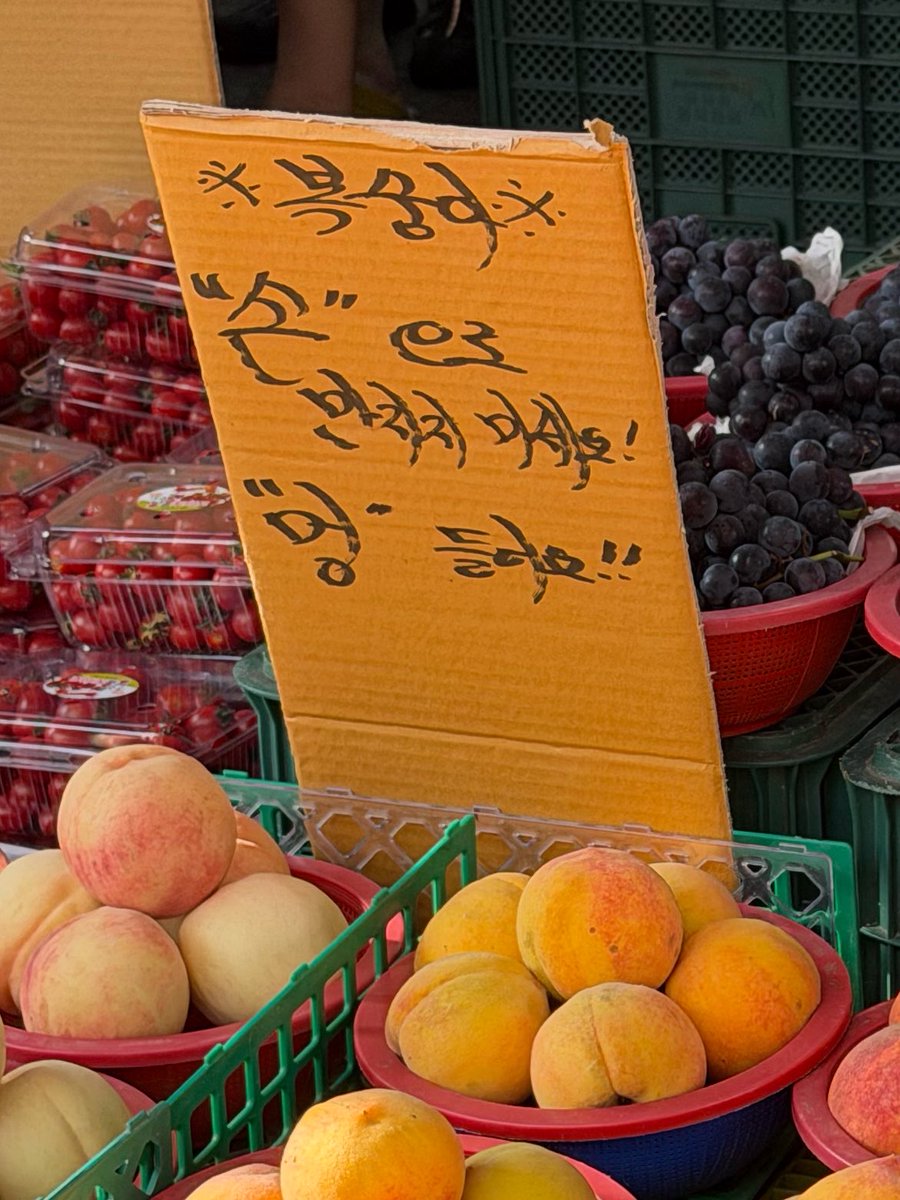 ※복숭아※
"손" 으로
만지지 마세요!
"멍" 들어요!!